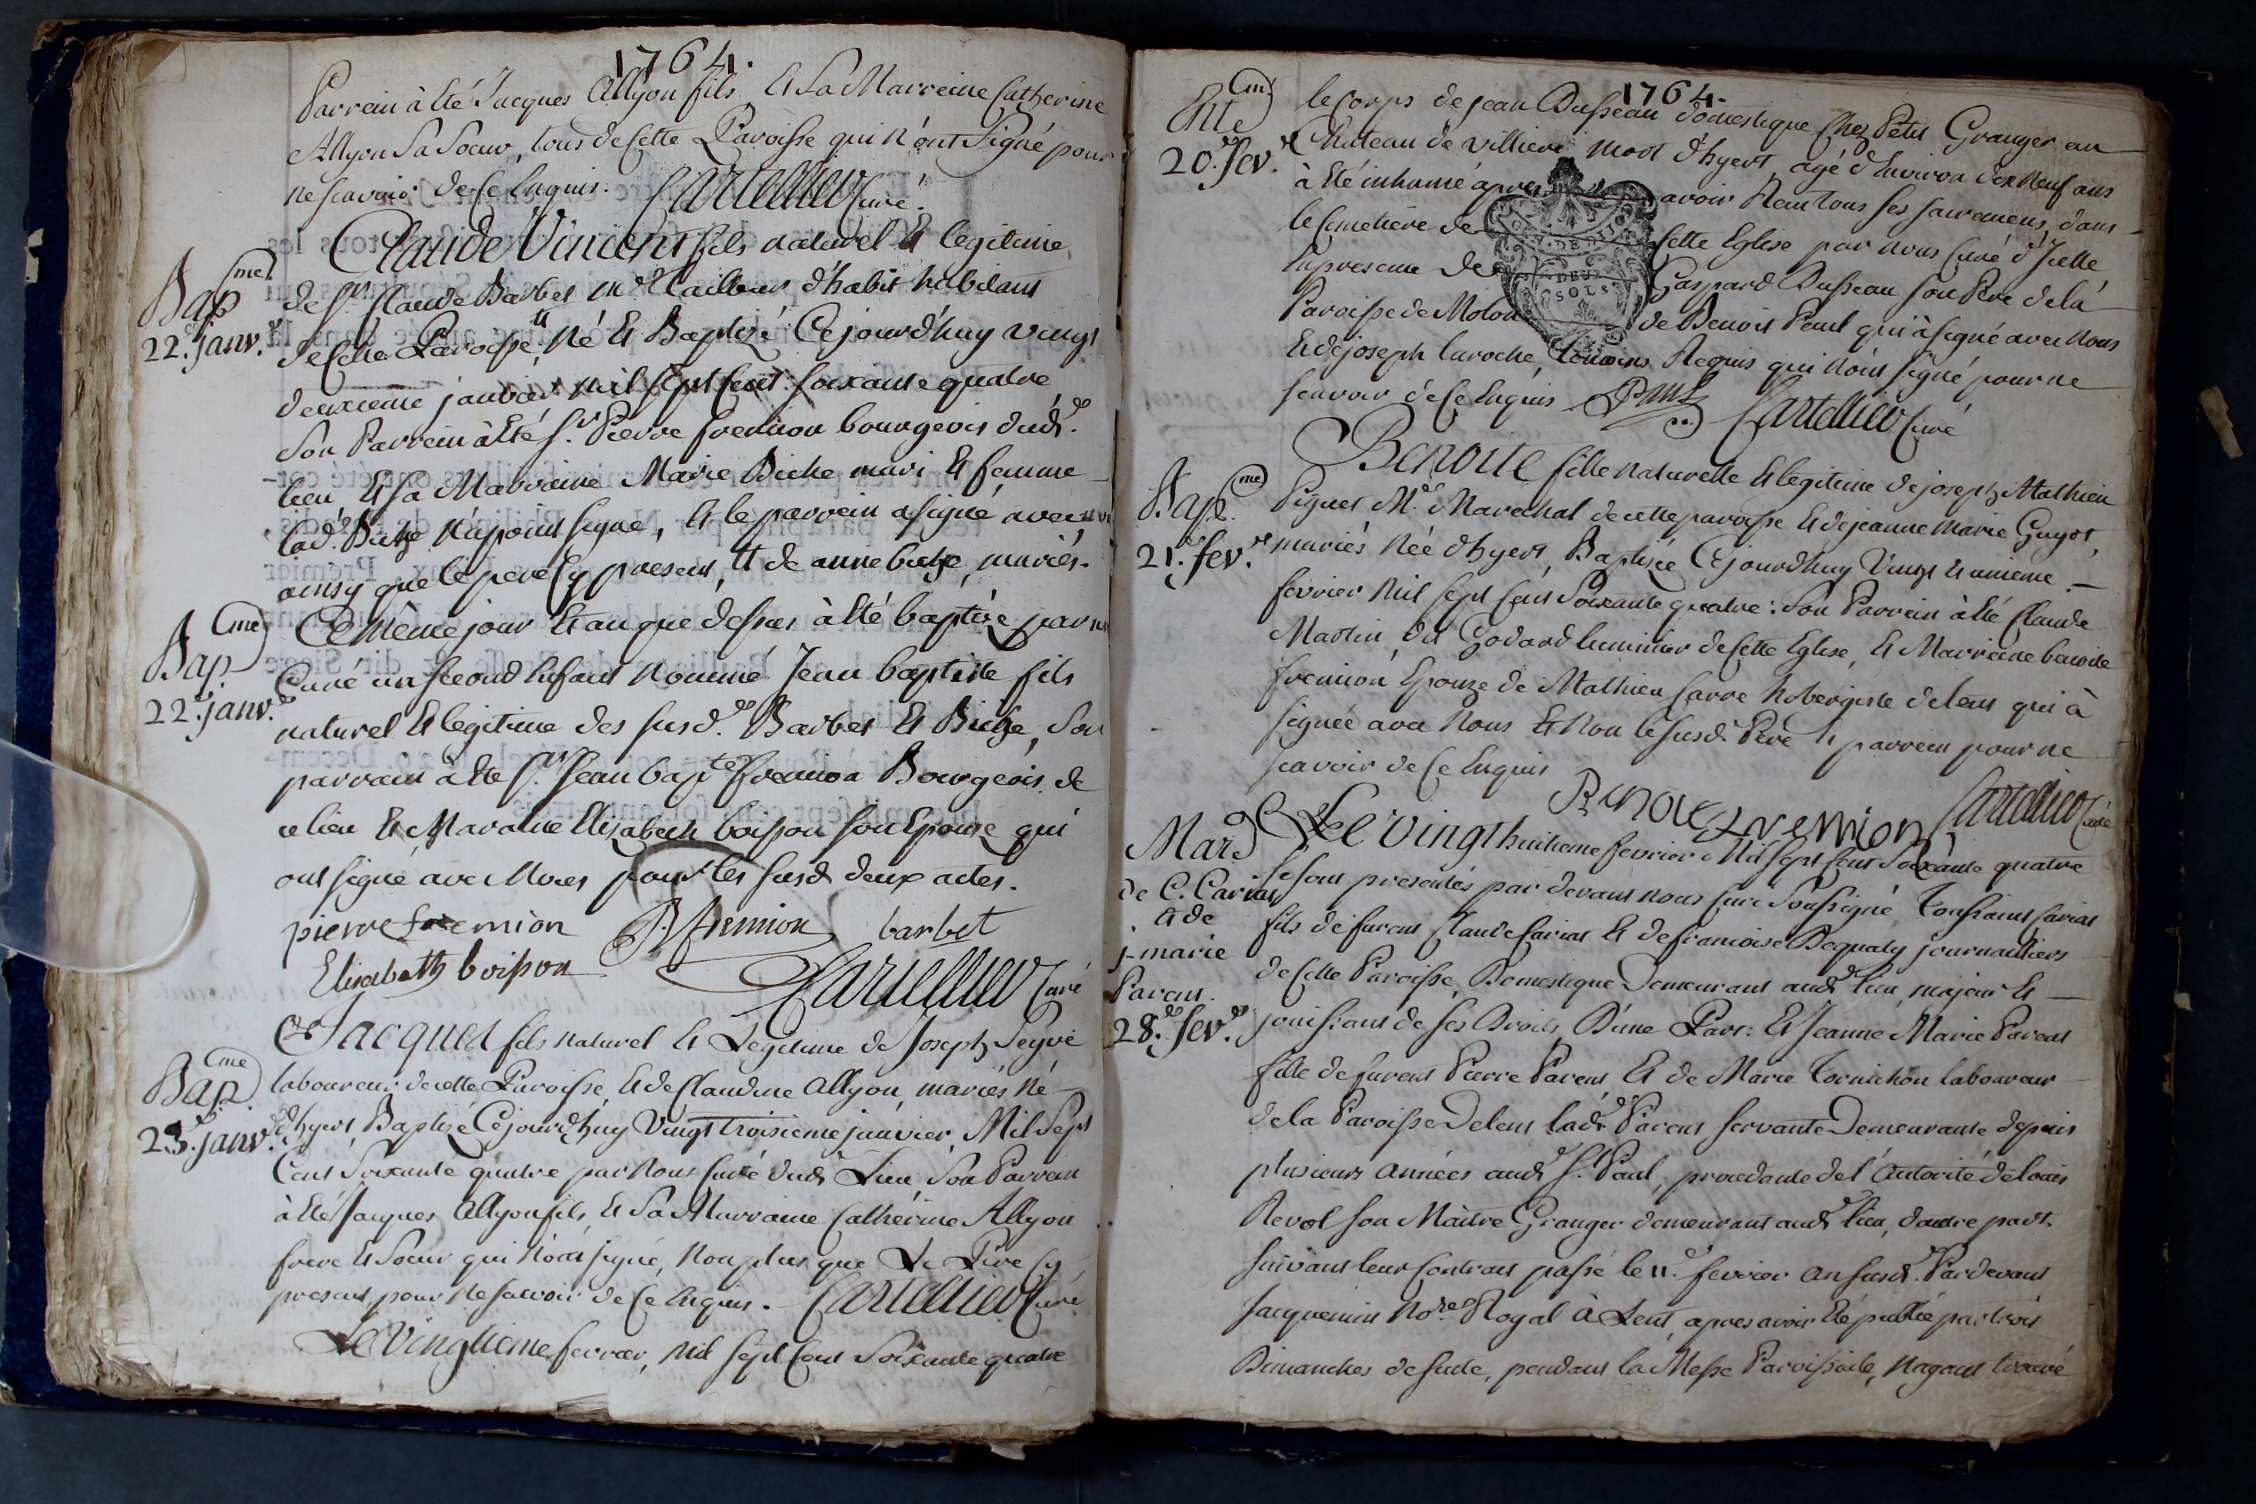 1764.
Parrein à Eté Jacques Allyon fils Et Sa Marreine Catherine
Allyon Sa Soeur, tous de Cette Paroisse qui n'ont Signé pour
ne scavoir de Ce Enquis. Cartellier Curé.
Bap.me
22.e janv.r
Claude Vincent fils naturel Et legitime
de Sr. Claude Barbet m.d Tailleur d'habit habitant
de Cette Paroisse, Né Et Baptizé Ce jourd'huy vingt
deuxieme janvier mil sept Cent soixante quatre
Son Parrein à Eté Sr. Pierre fremion bourgeois dud.
lieu Et sa Marraine Marie Biche mari Et femme
lad. Biche n'a point signé, Et le parrein a signé avec
ainsy que le pere Cy present, Et de anne biche, mariés.
Bap.me
22.e janv.
Ce même jour Et an que dessus à Eté baptizé par
Curé un second Enfant nommé Jean baptiste fils
naturel Et legitime des susd. Barbet Et Biche, Son
parrain à Eté Sr. Jean bap.te fremion Bourgeois de
ce lieu Et Maraine Elizabeth boisson son Epouze qui
ont signé avec Nous pour les susd. deux actes.
pierre fremion fremion barbet
Elisabeth boisson
Cartellier Curé
Bap.me
23.e janv.
Jacques fils naturel Et Legitime de Joseph Seyve
laboureur de cette Paroisse, Et de Claudine Allyon, mariés Né
d'hyert, Baptizé Ce jourd'huy Vingt troisieme janvier Mil Sept
Cent Soixante quatre par Nous Curé dud. Lieu Son Parrein
à Eté Jacques Allyon fils, Et Sa Marraine Catherine Allyon
frere Et Soeur qui N'ont signé, Non plus que Le Pere Cy
present pour Ne scavoir de Ce Enquis. Cartellier Curé
Le Vingtieme fevrier, Mil sept Cent Soixante quatre
1764.
20.e fev.r
le Corps de jean Dusseau domestique Chez Petit Granger au
Chateau de Villiere mort d'hyert, agé d'Environ dix Neuf ans
à Eté inhumé apres avoir Recu tous ses sacremens, dans
le Cimetiere de Cette Eglise par nous Curé d'Icelle
En presence de Gaspard Dusseau son Pere de la
Paroisse de Molon de Benoit Peul qui à signé avec Nous
Et de joseph laroche, temoins Requis qui N'ont signé pour ne
scavoir de Ce Enquis Cartellier Curé
DEUX
SOLS
Bap.me
21.e fev.r
Benoite fille naturelle Et legitime de joseph Mathieu
Piguet M.e Marechal de cette paroisse Et de jeanne Marie Guyot
mariés Née d'hyert, Baptizée Ce jourd'huy Vingt Et unieme
fevrier Mil sept Cent Soixante quatre: Son Parrein à Eté Claude
Martin, dit Godard luminier de Cette Eglise, Et Marreine benoite
fremion Epouze de Mathieu Carre hobergiste de lent qui à
signée avec Nous Et Non le susd. Pere Et parrein pour ne
scavoir de Ce Enquis
Benoite fremion Cartellier Curé
Mar.e
de C. Cariat
Et de
j. marie
Parent.
28.e fev.
Le Vingt huitieme fevrier Mil Sept Cent Soixante quatre
se sont presentés par devant nous Curé Soussigné Toussaint Cariat
fils de furent Claude Cariat Et de francoise Bequaty journailliers
de Cette Paroisse, Domestique Demeurant aud. lieu, majeur Et
jouissant de ses Droits, D'une Part: Et Jeanne Marie Parent
fille de furent Pierre Parent Et de Marie Tornichon laboureur
de la Paroisse Delent lad. Parent servante Demeurante depuis
plusieurs années aud. St. Paul, procedante de l'Autorité de louis
Revol son Maître Granger demeurant aud. lieu, d'autre part.
suivant leur Contrat passé le 11.e fevrier an susd. Pardevant
Jacquemin No.re Royal à Lent, apres avoir Eté publié par trois
Dimanches de suite, pendant la Messe Paroissiale, Nayant trouvé